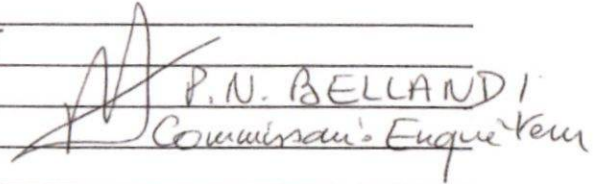 P.N. BELLANDI
Commissaire Enquêteur